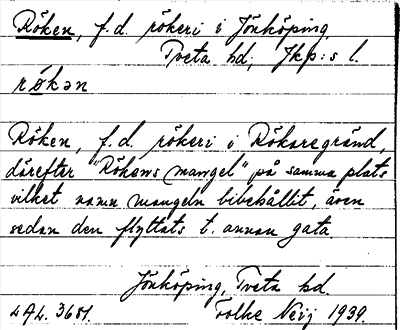 Röken, f.d. rökeri i Jönköping
Tveta hd; Jkp:s l.
rökən
Röken, f.d. rökeri i Rökaregränd,
därefter "Rökens mangel" på samma plats
vilket namn mangeln bibehållit, även
sedan den flyttats t. annan gata
Jönköping, Tveta hd.
Folke Neij 1939.